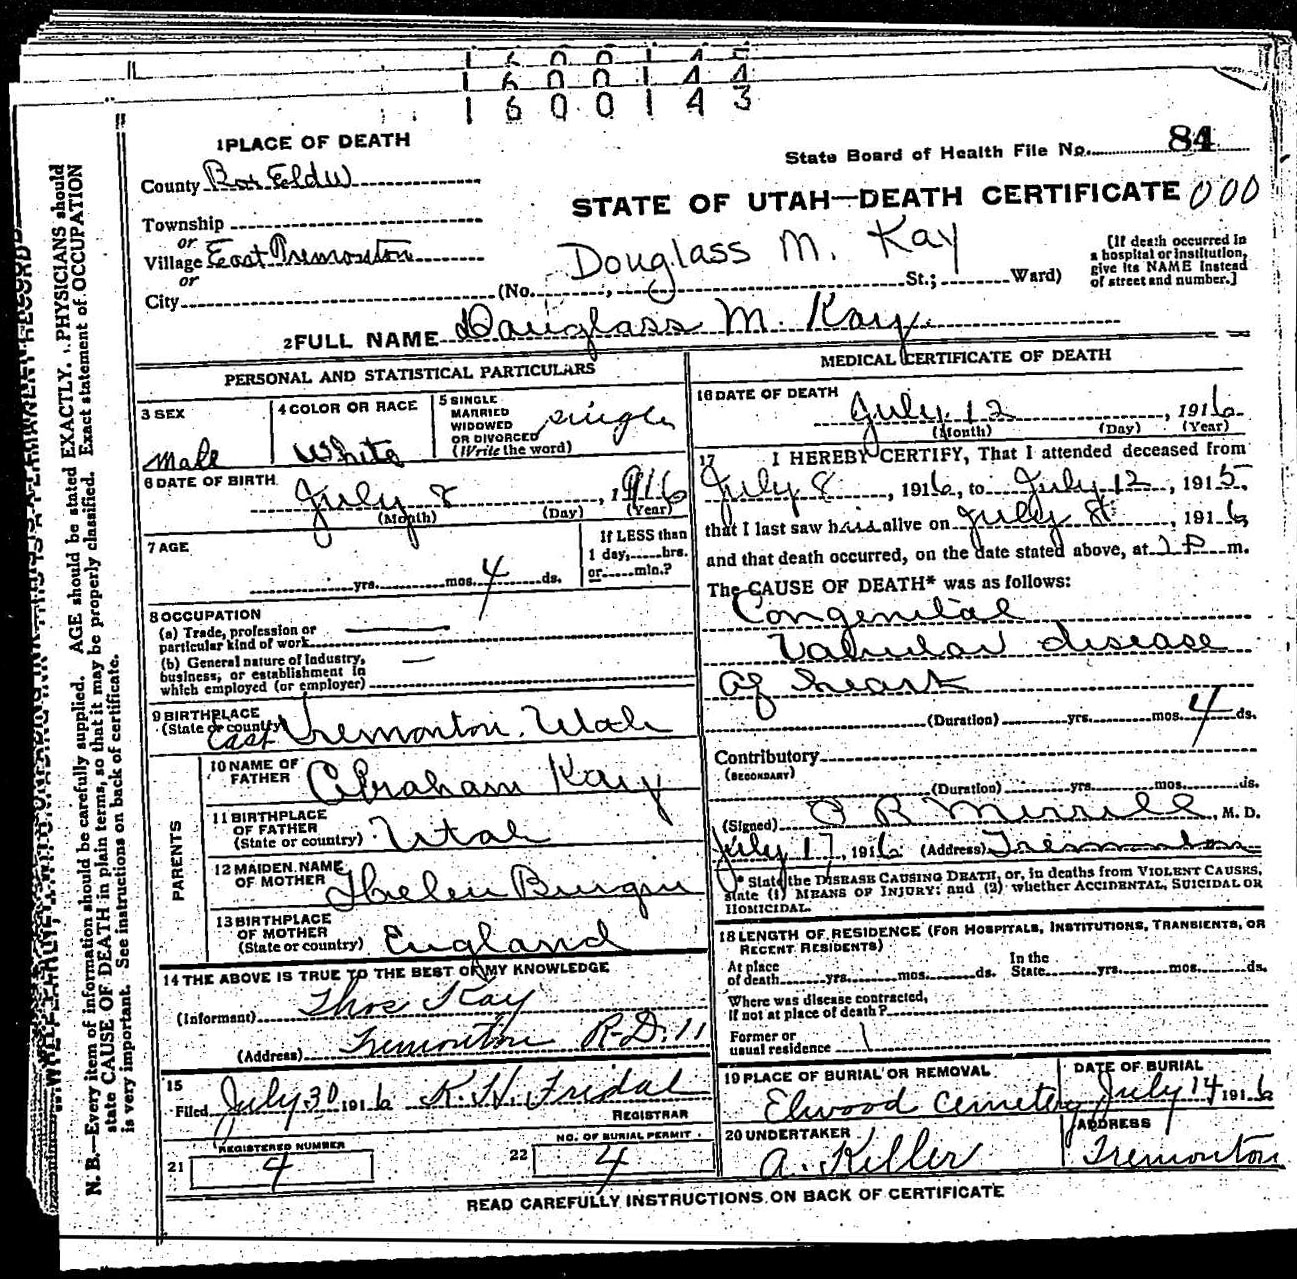 1 6 0 0 1 4 5
1 6 0 0 1 4 4
1 6 0 0 1 4 3
1 PLACE OF DEATH
State Board of Health File No. 84
County Box Elder
STATE OF UTAH—DEATH CERTIFICATE 000
Township
or
Village East Tremonton
Douglass M. Kay
or
City (No. , St.; Ward)
(If death occurred in a hospital or institution, give its NAME instead of street and number.]
2 FULL NAME Douglass M. Kay
PERSONAL AND STATISTICAL PARTICULARS
3 SEX
Male
4 COLOR OR RACE
White
5 SINGLE
MARRIED
WIDOWED
OR DIVORCED
(Write the word)
single
6 DATE OF BIRTH
July 8 , 1916
(Month) (Day) (Year)
7 AGE
yrs. mos. 4 ds.
If LESS than
1 day, hrs.
or min.?
8 OCCUPATION
(a) Trade, profession or
particular kind of work
(b) General nature of industry,
business, or establishment in
which employed (or employer)
9 BIRTHPLACE
(State or country)
East Tremonton, Utah
PARENTS
10 NAME OF
FATHER
Abraham Kay
11 BIRTHPLACE
OF FATHER
(State or country)
Utah
12 MAIDEN NAME
OF MOTHER
13 BIRTHPLACE
OF MOTHER
(State or country)
England
14 THE ABOVE IS TRUE TO THE BEST OF MY KNOWLEDGE
(Informant) Thos Kay
(Address) Tremonton R.D. 11
15
Filed July 30 1916 K. H. Fridal
REGISTRAR
21 REGISTERED NUMBER
4
22 NO. OF BURIAL PERMIT
4
MEDICAL CERTIFICATE OF DEATH
16 DATE OF DEATH
July 12 , 1916
(Month) (Day) (Year)
17 I HEREBY CERTIFY, That I attended deceased from
July 8 , 1916, to July 12 , 1915,
that I last saw him alive on July 8 , 1916
and that death occurred, on the date stated above, at 2 P m.
The CAUSE OF DEATH* was as follows:
Congenital
Valvular disease
of heart
(Duration) yrs. mos. 4 ds.
Contributory
(SECONDARY)
(Duration) yrs. mos. ds.
(Signed) Merrill, M. D.
July 17, 1916 (Address) Tremonton
* State the DISEASE CAUSING DEATH, or, in deaths from VIOLENT CAUSES,
state (1) MEANS OF INJURY; and (2) whether ACCIDENTAL, SUICIDAL OR
HOMICIDAL.
18 LENGTH OF RESIDENCE (FOR HOSPITALS, INSTITUTIONS, TRANSIENTS, OR
RECENT RESIDENTS)
At place
of death yrs. mos. ds.
In the
State yrs. mos. ds.
Where was disease contracted,
if not at place of death?
Former or
usual residence
19 PLACE OF BURIAL OR REMOVAL
Elwood Cemetery
DATE OF BURIAL
July 14 1916
20 UNDERTAKER
A. Keller
ADDRESS
Tremonton
READ CAREFULLY INSTRUCTIONS ON BACK OF CERTIFICATE
N. B.—Every item of information should be carefully supplied. AGE should be stated EXACTLY. PHYSICIANS should
state CAUSE OF DEATH in plain terms, so that it may be properly classified. Exact statement of OCCUPATION
is very important. See instructions on back of certificate.